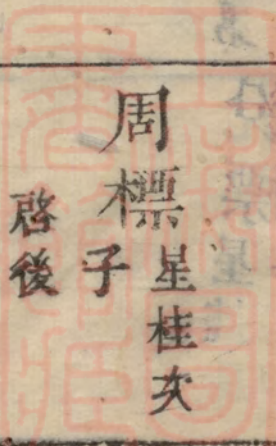 周標
星桂次
子
啓後